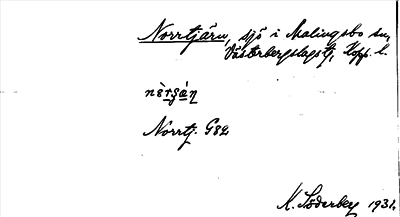 Norrtjärn, sjö i Malingsbo sn,
Västerbergslags tj, Kopp. l.
nèrʂán
Norrtj. G82
K. Söderberg 1931.